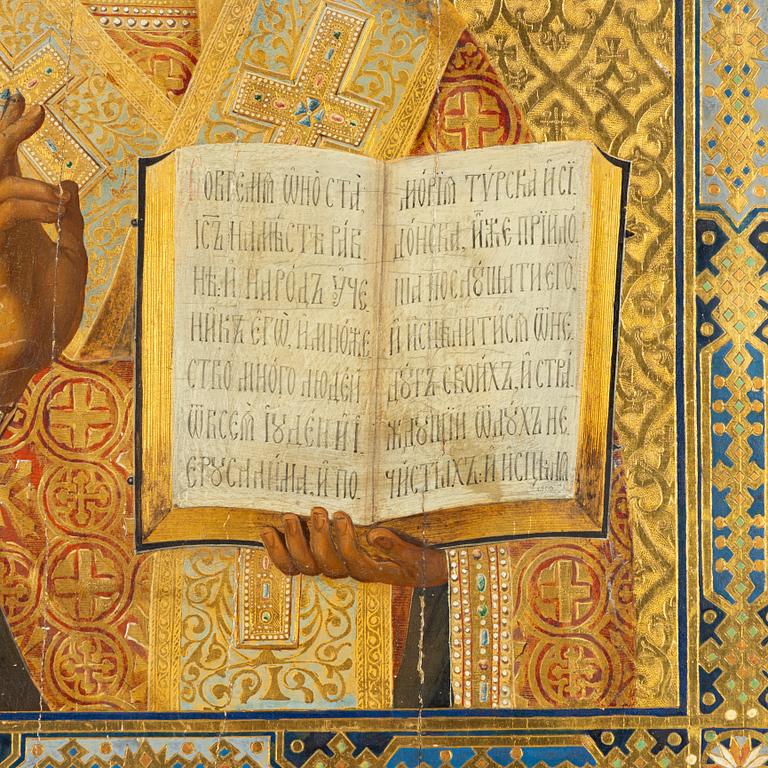 Во время ѻно ста̀
і҃съ на мѣстѣ ра́в
нѣ: и҆ наро́дъ ѹ҆че
ни́къ є҆гѡ̀, и҆ мно́же
ство мно́го люде́й
ѿ всеѧ̀ і҆ꙋде́и и҆ і҆
єрꙋсали́ма, и҆ по
мо́рїѧ ту́рска и҆ сі
до́нска, и҆́же прїидо́
ша послꙋ́шати є҆гѡ̀,
и҆ и҆сцѣли́тисѧ ѿ не
дꙋ́гъ свои́хъ, и҆ стра́
ждꙋщїи ѿ дꙋ́хъ не
чи́стыхъ: и҆ и҆сцѣлѧ́